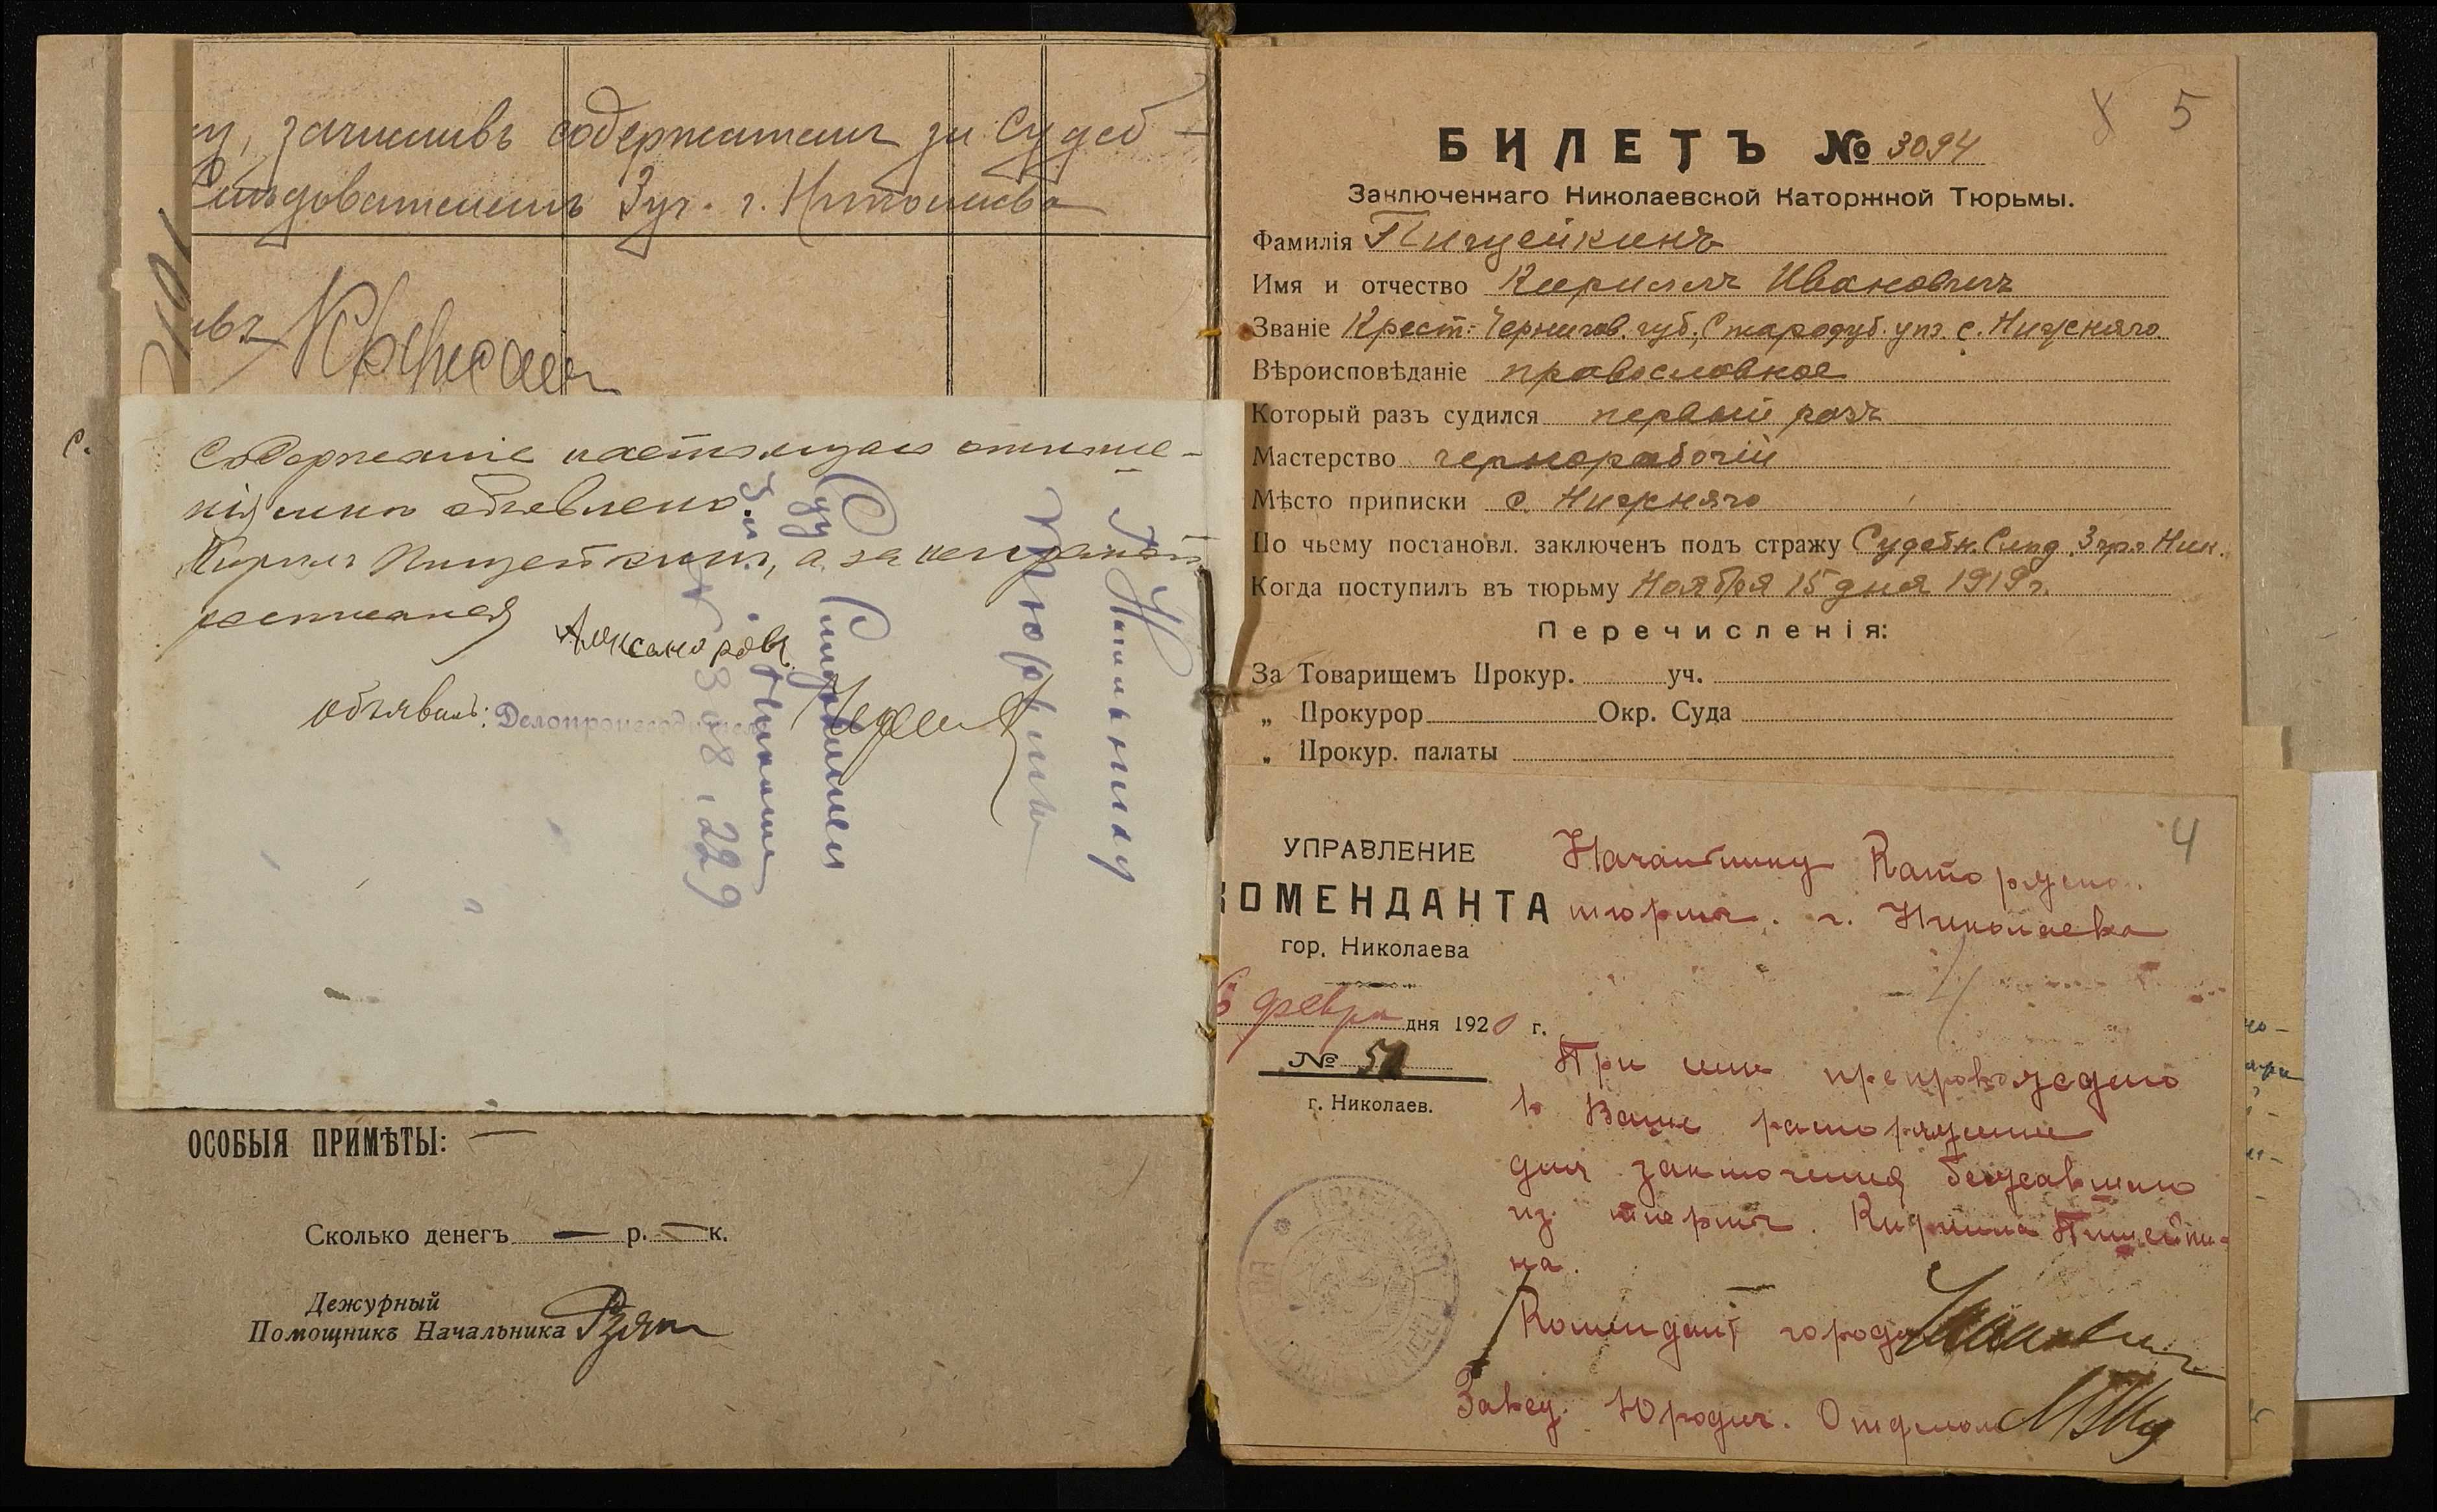 у, зачислив содержанием за Судеб-
Следователем 3 уч. г. Николаева
Содержаніе настоящаго отноше-
нія мнѣ объявлено.
Кириллъ Пищейкинъ, а за неграмот.
росписался Александровъ
объявилъ: Делопроизводитель
Г. Начальнику
Тюрьмы
Суд. Следователя
3 уч. г. Николаева
ОСОБЫЯ ПРИМѢТЫ: —
Сколько денегъ — р. — к.
Дежурный
Помощникъ Начальника
8 5
БИЛЕТЪ № 3094
Заключеннаго Николаевской Каторжной Тюрьмы.
Фамилія Пищейкинъ
Имя и отчество Кириллъ Ивановичъ
Званіе Крест. Чернигов. губ., Стародуб. уѣз. с. Нижняго.
Вѣроисповѣданіе православное
Который разъ судился первый разъ
Мастерство чернорабочій
Мѣсто приписки с. Нижняго
По чьему постановл. заключенъ подъ стражу Судебн. Слѣд. 3 уч. Ник.
Когда поступилъ въ тюрьму Ноября 15 дня 1919 г.
Перечисленія:
За Товарищемъ Прокур. уч.
„ Прокурор Окр. Суда
„ Прокур. палаты
4
УПРАВЛЕНИЕ
КОМЕНДАНТА
гор. Николаева
февра дня 1920 г.
№ 51
г. Николаев.
Начальнику Каторжно.
тюрьм. г. Николаева
При сем препровождено
в Ваше распоряжение
для заключения бежавшего
из тюрьм. Кирилла Пищейки-
на.
Комендант города
Завед. Юридич. Отделом